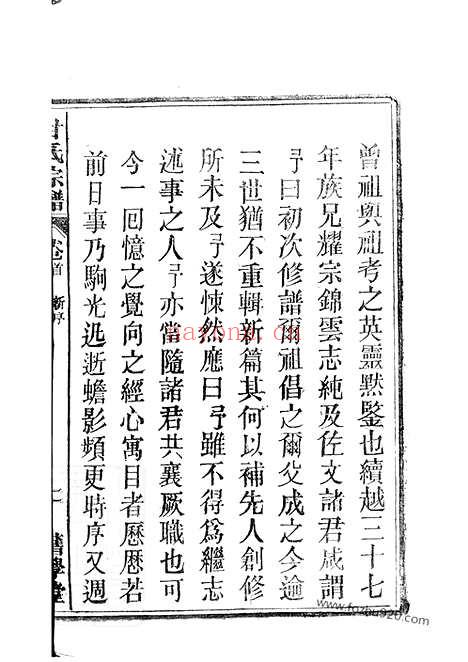 曾祖與祖考之英靈默鑒也續越三十七
年族兄耀宗錦雲志純及佐文諸君咸謂
予曰初次修譜爾祖倡之爾父成之今逾
三世猶不重輯新篇其何以補先人創修
所未及予遂悚然應曰予雖不得為繼志
述事之人予亦當隨諸君共襄厥職也可
今一回憶之覺向之經心寓目者歷歷若
前日事乃駒光迅逝蟾影頻更時序又週
氏宗譜
卷首
新序
二
堂
www.fozhu920.com